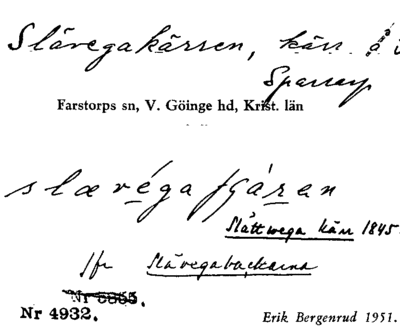 Slävegakärren, kärr å
Sparrarp
Farstorps sn, V. Göinge hd, Krist. län
slævéga fjáran
Slättwega kärr 1845.
Jfr Slävegabackarna
Nr 4932.
Erik Bergenrud 1951.